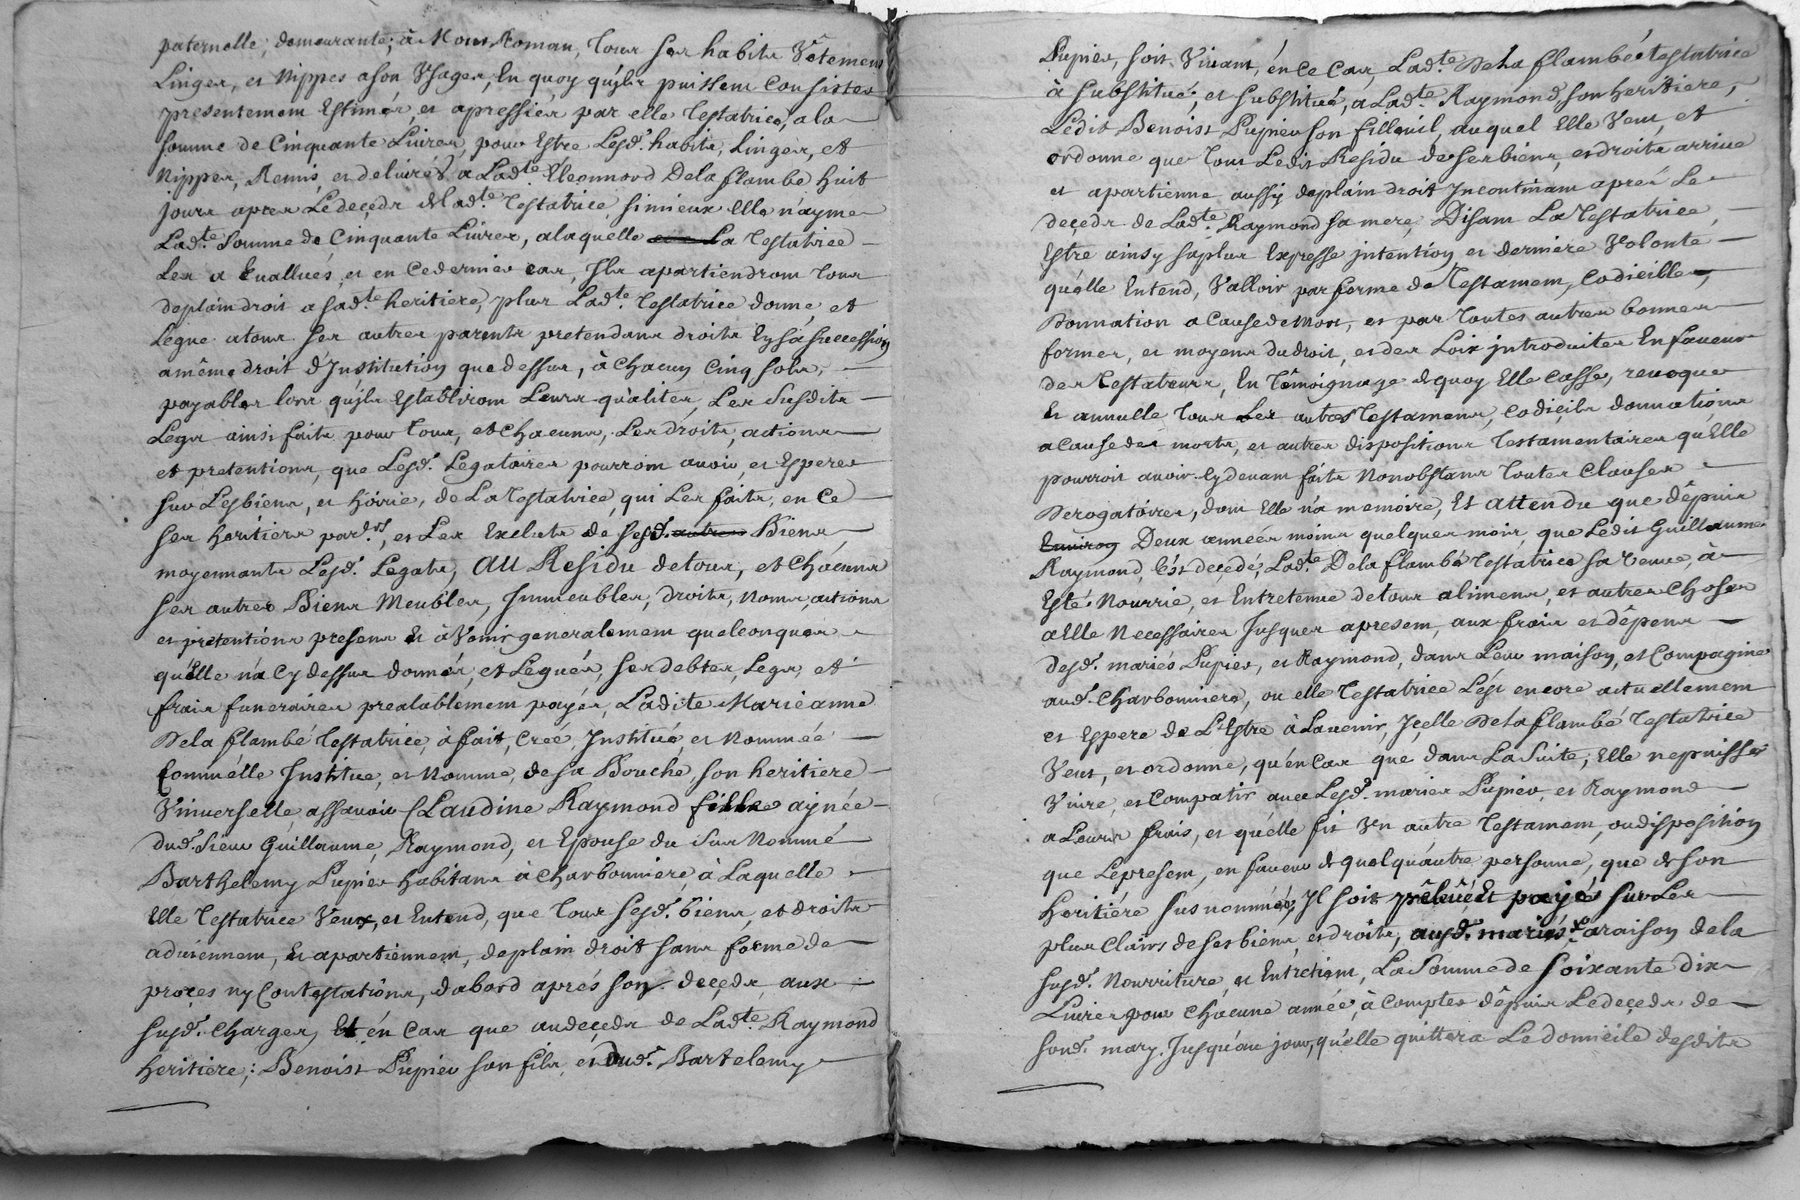 paternelle, demeurante, à Mont Roman, tous ses habits Vêtemens
Linges, et Nippes a son Usages, En quoy qu'ils puissent Consister
presentement Estimés, et apressiés par elle Testatrice, a la
somme de Cinquante Livres, pour Estre Lesd.s habits, Linges, et
Nippes, Remis, et delivrés a Lad.te Eleonnord Dela flambé huit
Jours apres Le deçeds de lad.te Testatrice, si mieux Elle n'ayme
Lad.te Somme de Cinquante Livres, a laquelle La Testatrice
Les a Evallués, et en Ce dernier cas, Ils apartiendront tous
de plain droit a sad.te heritiere, plus Lad.te Testatrice donne, et
Legue a tous ses autres parents pretendans droits En sa succession
a même droit d'Institution que dessus, à Chacun Cinq sols,
payables lors qu'ils Establiront Leurs qualités, Les Susdits
Legs ainsi faits pour tous, et Chacuns, Les droits, actions
et pretentions, que Lesd.s Legataires pourroint avoir, et Esperer
sur Les biens, et hoirie, de La Testatrice, qui Les faits, en Ce
ses heritiers par.rs, et Les Excluts de sesd.s autres Biens,
moyennants Lesd.s Legats, AU Residu de tous, et Chacuns
ses autres Biens Meubles, Immeubles, droits, noms, actions
et prétentions presens Et à Venir generalement quelconques
qu'elle n'a Cy dessus donnés, et Legués, ses debtes, Legs, et
frais funeraires prealablement payés, Ladite Marieanne
Dela flambé Testatrice, à fait, Creé, Institué, et Nommée
Comme elle Institue, et Nomme, de sa Bouche, son heritiere
Universelle, assavoir Claudine Raymond fille ainée
dud. Sieur Guillaume, Raymond, et Epouse du Sus Nommé
Barthelemy Pupier habitans à Charbonniere, à Laquelle
Elle Testatrice Veux, et Entend, que tous sesd.s biens, et droits
advienent, Et apartiennent, de plain droit sans forme de
proçes ny Contestations, dabord aprés son deçeds, aux
susd.s Charges, Et én Cas que au deçeds de Lad.te Raymond
heritiere; Benoist Pupier son fils, et dud.t Bartelemy
Pupier, soit Vivant, én Ce Cas, Lad.te Dela flambé Testatrice
à Substitué, et substitue, a Lad.te Raymond son heritiere,
Ledit Benoist Pupier son filleuil, auquel Elle Veut, et
ordonne que tout Ledit Residu de ses biens, et droits arrive
et apartienne aussy de plain droit Incontinant aprés Le
deçeds de Lad.te Raymond sa mere, Disant La Testatrice,
Estre ainsy sa plus Expresse jntention et derniére Volonté
qu'elle Entend, Valloir par forme de Testament, Codicille,
Donnation a Cause de Mort, et par toutes autres bonnes
formes, et moyens du droit, et des Loix jntroduites En faveur
des Testateurs, En Témoignage de quoy Elle Casse, revoque
Et annulle tous Les autres Testamens, Codiçils donnations
a Cause des morts, et autres dispositions Testamentaires qu'Elle
pourroit avoir Cy devant faits Nonobstans toutes Clauses
Derogatoires, dont Elle n'a memoire, Et attendu que dêpuis
Environ Deux années moins quelques mois, que Ledit Guillaume
Raymond, est decedé, Lad.te Dela flambé Testatrice sa Veuve, à
Esté Nourrie, et Entretenue de tous alimens, et autres Choses
a Elle Necessaires Jusques apresent, aux frais et dépens
desd.s mariés Pupier, et Raymond, dans Leur maison, et Compagnie
aud. Charbonniere, ou elle Testatrice L'est encore actuellement
et Espere de L'Estre à Lavenir, Jcelle Dela flambé Testatrice
Veut, et ordonne, qu'én Cas que dans La Suite, Elle ne puisse
Vivre, et Compatir avec Lesd.s mariés Pupier, et Raymond
a Leurs frais, et qu'elle fit Un autre Testament, ou disposition
que Le present, en faveur de quelqu'autre personne, que de son
heritiére sus nommée, Il soit prêlevé Et payés sur Les
plus Clairs de ses biens, et droits, ausd.s mariés a raison de la
susd.e Nourriture, et Entretiens, La Somme de soixante dix
Livres pour Chacune année, à Compter dêpuis Le deçeds de
sond.t mary, Jusqu'au jour, qu'elle quittera Le domicile desdits